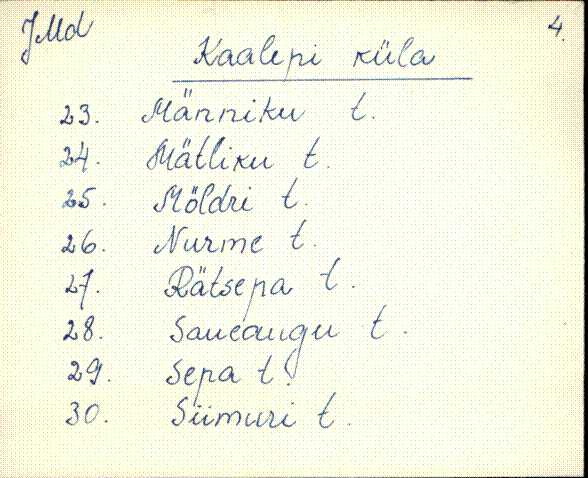 JMd
4.
Kaalepi küla
23. Männiku t.
24. Mätliku t.
25. Möldri t.
26. Nurme t.
27. Rätsepa t.
28. Saueaugu t.
29. Sepa t.
30. Siimuri t.